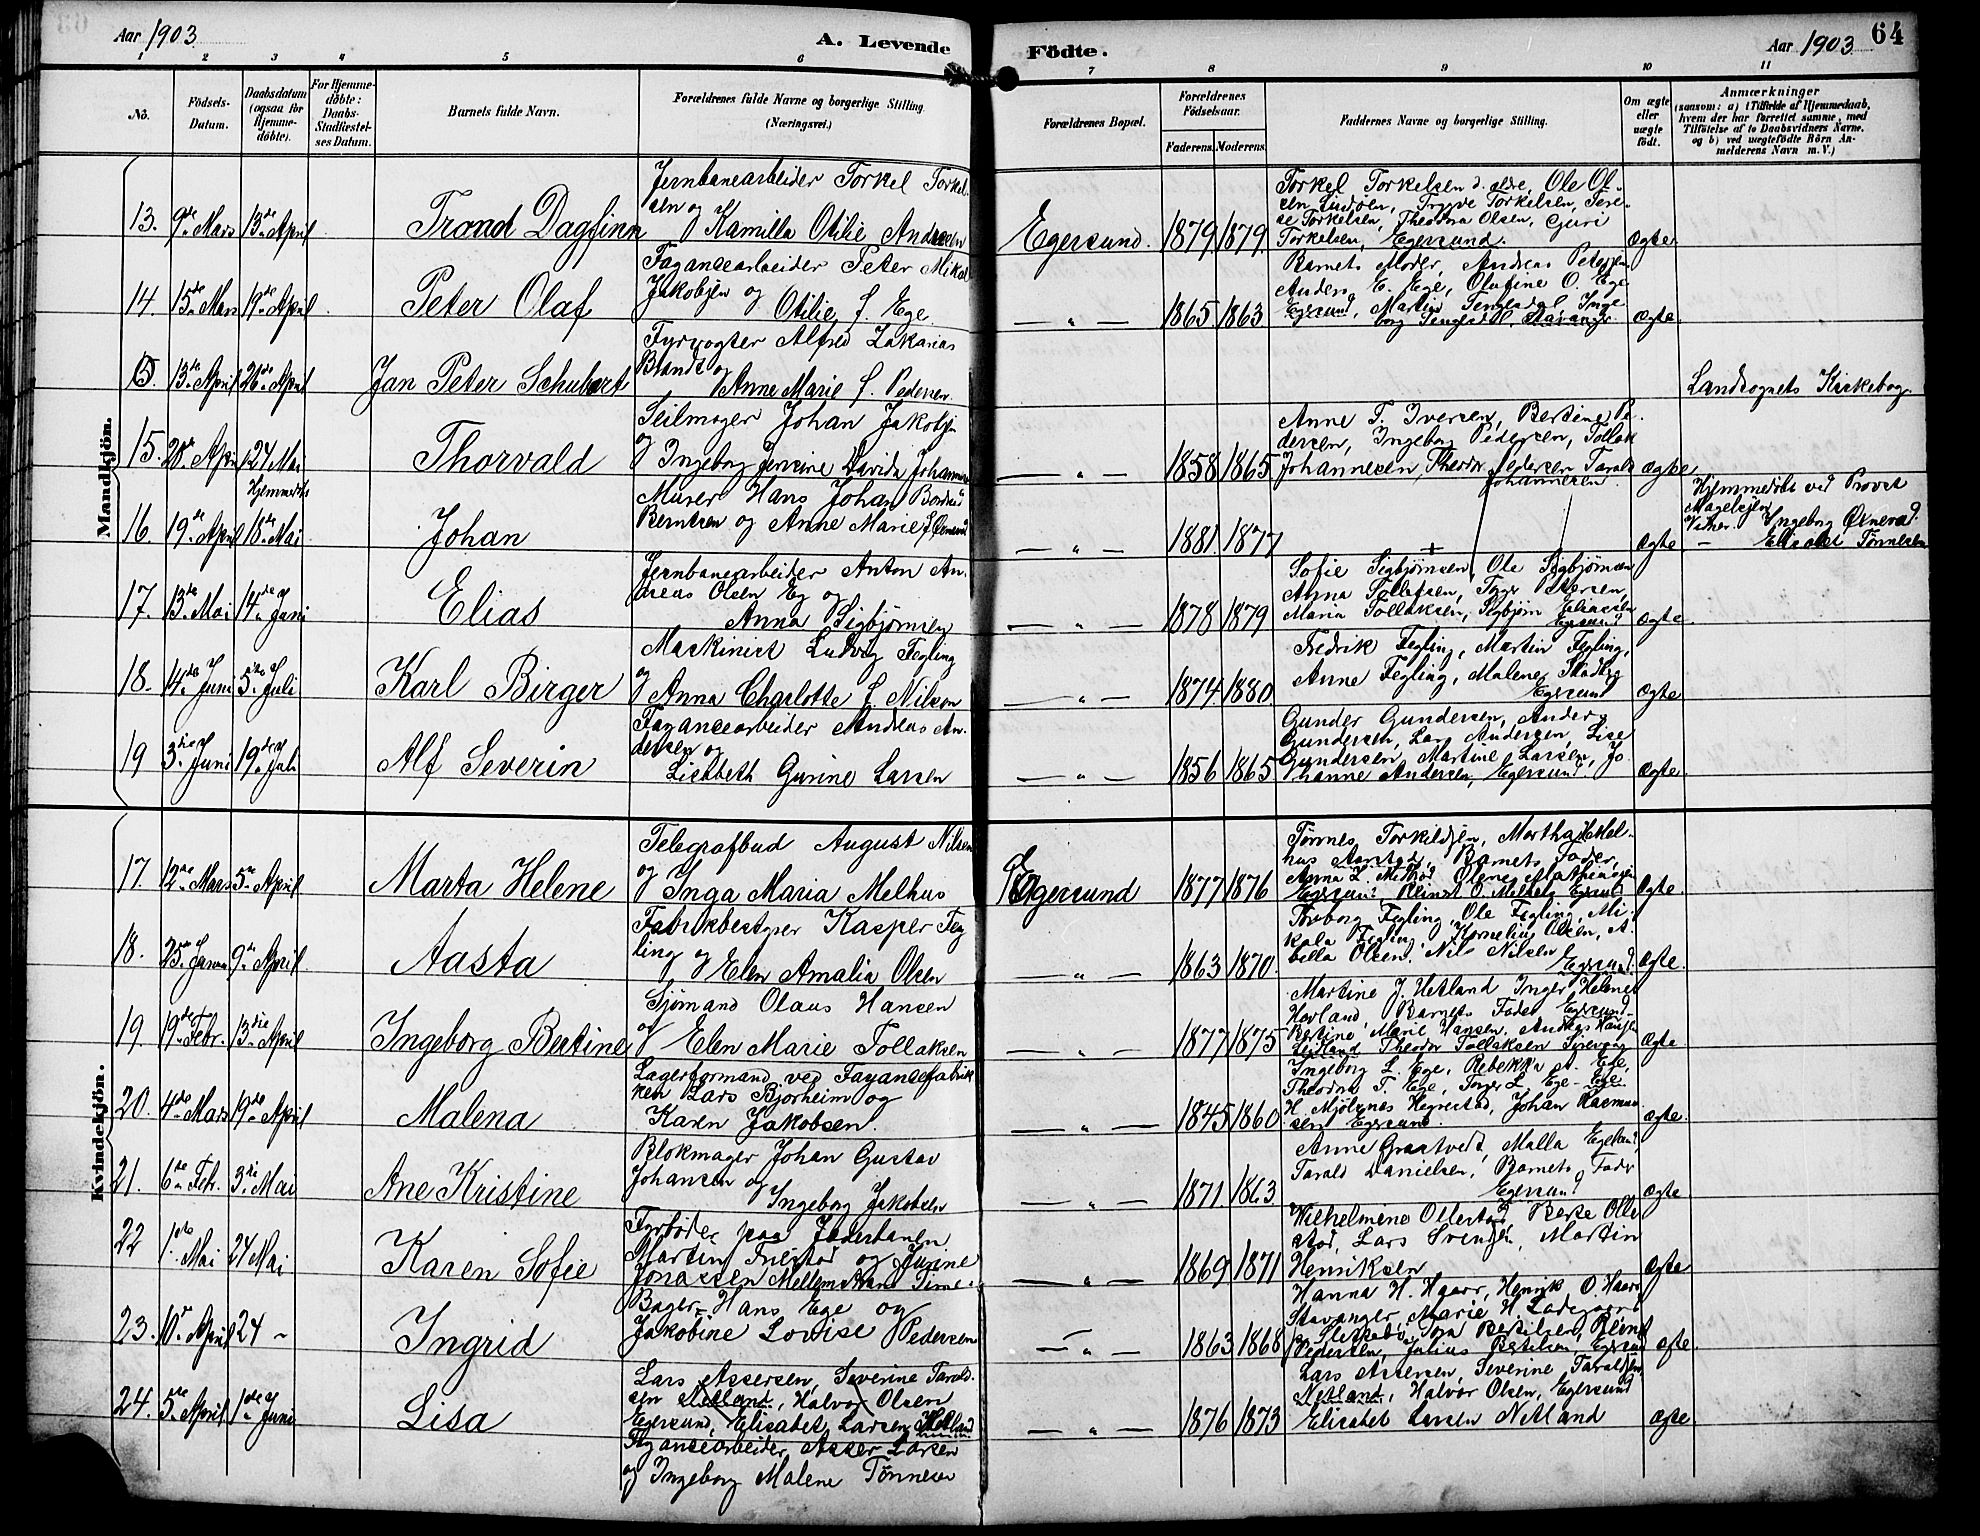 Aar 1903
A. Levende
Födte.
Aar 1903
64
1 2 3 4 5 6 7 8 9 10 11
No.
Födsels-
Datum.
Daabsdatum
(ogsaa for
Hjemme-
döbte).
For Hjemme-
döbte:
Daabs-
Stadfæstel-
ses Datum.
Barnets fulde Navn.
Forældrenes fulde Navne og borgerlige Stilling
(Næringsvei.)
Forældrenes Bopæl.
Forældrenes
Födselsaar.
Faderens. Moderens.
Faddernes Navne og borgerlige Stilling.
Om ægte
eller
uægte
födt.
Anmærkninger
(saasom: a) i Tilfælde af Hjemmedaab,
hvem der har forrettet samme, med
Tilföielse af to Daabsvidners Navne.
og b) ved uægtefödte Börn An-
melderens Navn m. V.)
Mandkjön.
13. 9de Mars 13de April
Trond Dagfinn
Jernbanearbeider Torkel Torkel-
sen og
Kamilla Otilie Andersen
Egersund.
1879. 1879.
Torkel Torkelsen d. ældre, Ole Ol-
sen Lindöen, Trygve Torkelsen, Tere-
se Torkelsen, Theodora Olsen, Guri
Torkelsen, Egersund.
Ægte
14. 15de Mars 19de April
Peter Olaf
Fayancearbeider Peter Mikal
Jakobsen og
Otilie f. Ege.
— " —
1865 1863
Barnets Moder, Andreas Petersen
Anders E. Ege, Olufine O. Ege
Egersund, Martin Tengesdal, Inge-
borg Tengesdal, Stavanger
Ægte
13de April 26de April
Jan Peter Schubert
Fyrvogter Alfred Zakarias
Brandt og
Anne Marie f. Pedersen.
Landsognets Kirkebog
15. 20de April 24 Mai
Thorvald
Seilmager Johan Jakobsen
og Ingeborg Jensine Davida Johannesen
— " —
1858 1865
Anne T. Iversen, Bertine Pe-
dersen, Ingeborg Pedersen, Tollak
Johannesen, Theodor Pedersen Tarald
Johannesen.
Ægte
16. 19de April Hjemmedöbt
18de Mai
Johan
Murer Hans Johan
Berntsen og Anne Marie f.
— " —
1881. 1877
Ægte
Hjemmedöbt ved Provst
Magelssen
Vidner. Ingeborg Øxnevad.
— Elisabet Tönnesen
17. 13de Mai 14de Juni
Elias
Jernbanearbeider Anton An-
dreas Olsen Eg og
Anna Sigbjörnsen
— " —
1878 1879
Sofie Sigbjörnsen, Ole Sigbjörnsen
Anna Tollefsen, Tyger Petersen,
Maria Tollaksen, Sigbjörn Eliassen
Egersund
Ægte
18. 14de Juni 5te Juli
Karl Birger
Maskinist Ludvig Fegling
og
Anna Charlotte f. Nilsen
— " —
1874. 1880.
Fredrik Fegling, Martin Fegling,
Anne Fegling, Malene Stadberg
Egersund
Ægte
19 3die Juni 19de Juli
Alf Severin
Fayancearbeider Andreas An-
dersen og
Lisabeth Gurine Larsen
— " —
1856 1865
Gunder Gundersen, Anders
Gundersen, Lars Andersen, Lise
Gundersen, Martine Larsen, Jo-
hanne Andersen, Egersund
Ægte
Kvindekjön.
17. 12te Mars 5te April
Marta Helene
Telegrafbud August Nilsen
og Inga Maria Melhus
Egersund
1877 1876
Tönnes Torkildsen, Martha Mel-
hus Aarstad, Barnets Fader,
Anna L. Melhus, Olene Mathiassen
Egersund, O. Melhus Egersund
Ægte
18. 25de Januar 9de April
Aasta
Fabrikbestyrer Kasper Feg
ling og
Elen Amalia Olsen
— " —
1863 1870.
Torborg Fegling, Ole Fegling, Mi-
kala Fegling, Kornelius Olsen, A-
bella Olsen, Nils Nilsen
Egersund.
Ægte.
19. 19de Febr. 13die April
Ingeborg Bertine
Sjömand Olaus Hansen
og Elen Marie Tollaksen
— " —
1877 1875
Martine J. Hetland Inger Helene
Hovland Barnets Fader Egersund
Bertine Marie Hansen, Andreas Hansen
Theodor Tollaksen Sirevaag
Ægte
20. 4de Mars 19de April
Malena
Lagerformand ved Fayancefabrik
ken Lars Bjorheim og
Karen Jakobsen.
— " —
1845 1860.
Ingeborg L. Ege, Rebekka A. Ege,
Theodora T. Ege, Torger L. Ege - Ege
H. Mjölsnes Hegrestad, Johan Rasmus-
sen Egersund.
Ægte.
21. 6te Feb. 3die Mai
Ane Kristine
Blokmager Johan Gustav
Johansen og
Ingeborg Jakobsen
— " —
1871. 1863
Anne Graatveit, Malla Egeland,
Tarald Danielsen, Barnets Fader
Egersund
Ægte
22 1ste Mai 24 Mai
Karen Sofie
Fyrböder paa Jæderbanen
Martin Tuestad og Jurine
Jonassen
— " —
1869 1871
Wilhelmine Ollestad, Berte Olle-
stad, Lars Svendsen, Martin
Henriksen
Ægte
23. 10de April 24 -
Ingrid
Bager Hans Ege og
Jakobine Lovise Pedersen
— " —
1863 1868
Hanna H. Haarr, Henrik O. Haarr
Stavanger, Marie H. Ladegaard
Slettebø, Tora Bertilsen,
Pedersen, Julius Bertilsen, Egersund
Ægte.
24. 5te April 1ste Juni
Lisa
Lars Assersen, Severine Tarald-
sen Netland, Halvor Olsen
Egersund, Elisabet Larsen Netland
Fayancearbeider Asser Larsen
og Ingeborg Malene Tönnesen
— " —
1876 1873
Lars Assersen, Severine Taraldsen
Netland, Halvor Olsen, Egersund
Elisabet Larsen Netland
Ægte